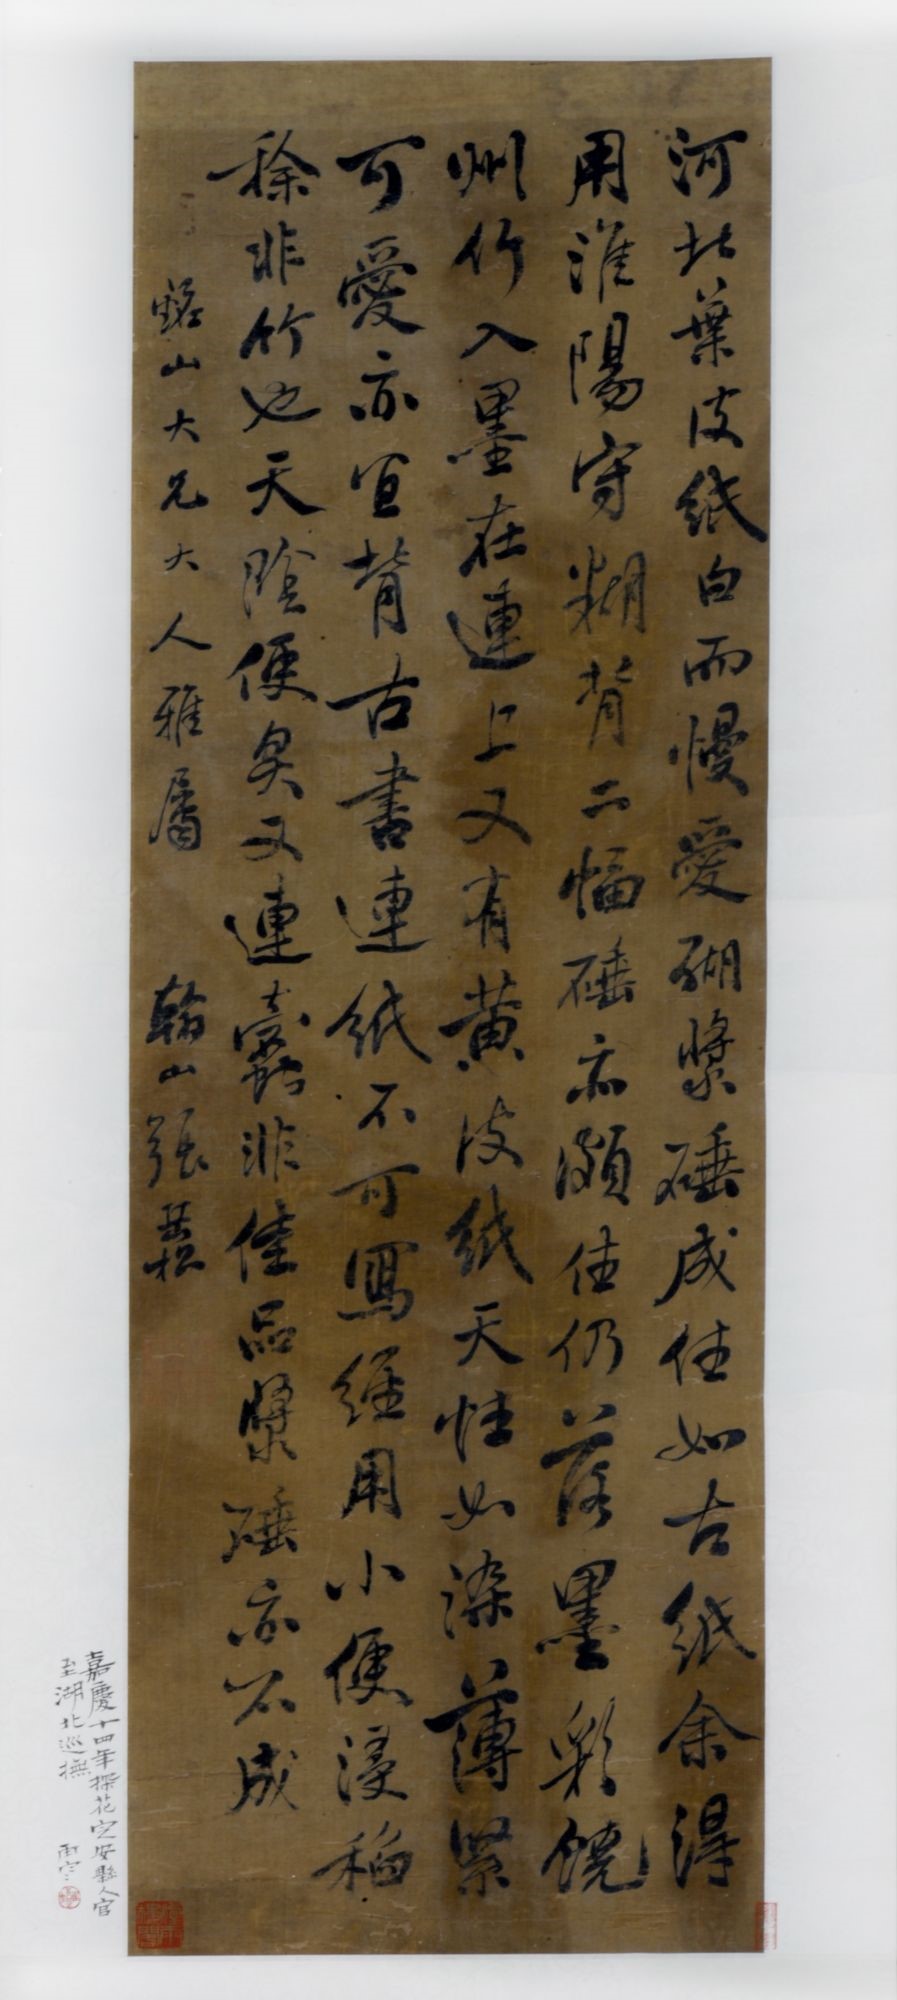 河北葉皮紙白而慢愛糊漿硾成佳如古紙余得
用淮陽守糊背二幅硾亦頗佳仍落墨彩饒
州竹入墨在連上又有黃皮紙天性如染薄緊
可愛亦宜背古書連紙不可寫經用小便浸稻
稌非竹也天陰便臭又連蠹非佳品漿硾亦不成
山大兄大人雅屬
翰山張岳崧
嘉慶十四年探花定安縣人官
至湖北巡撫